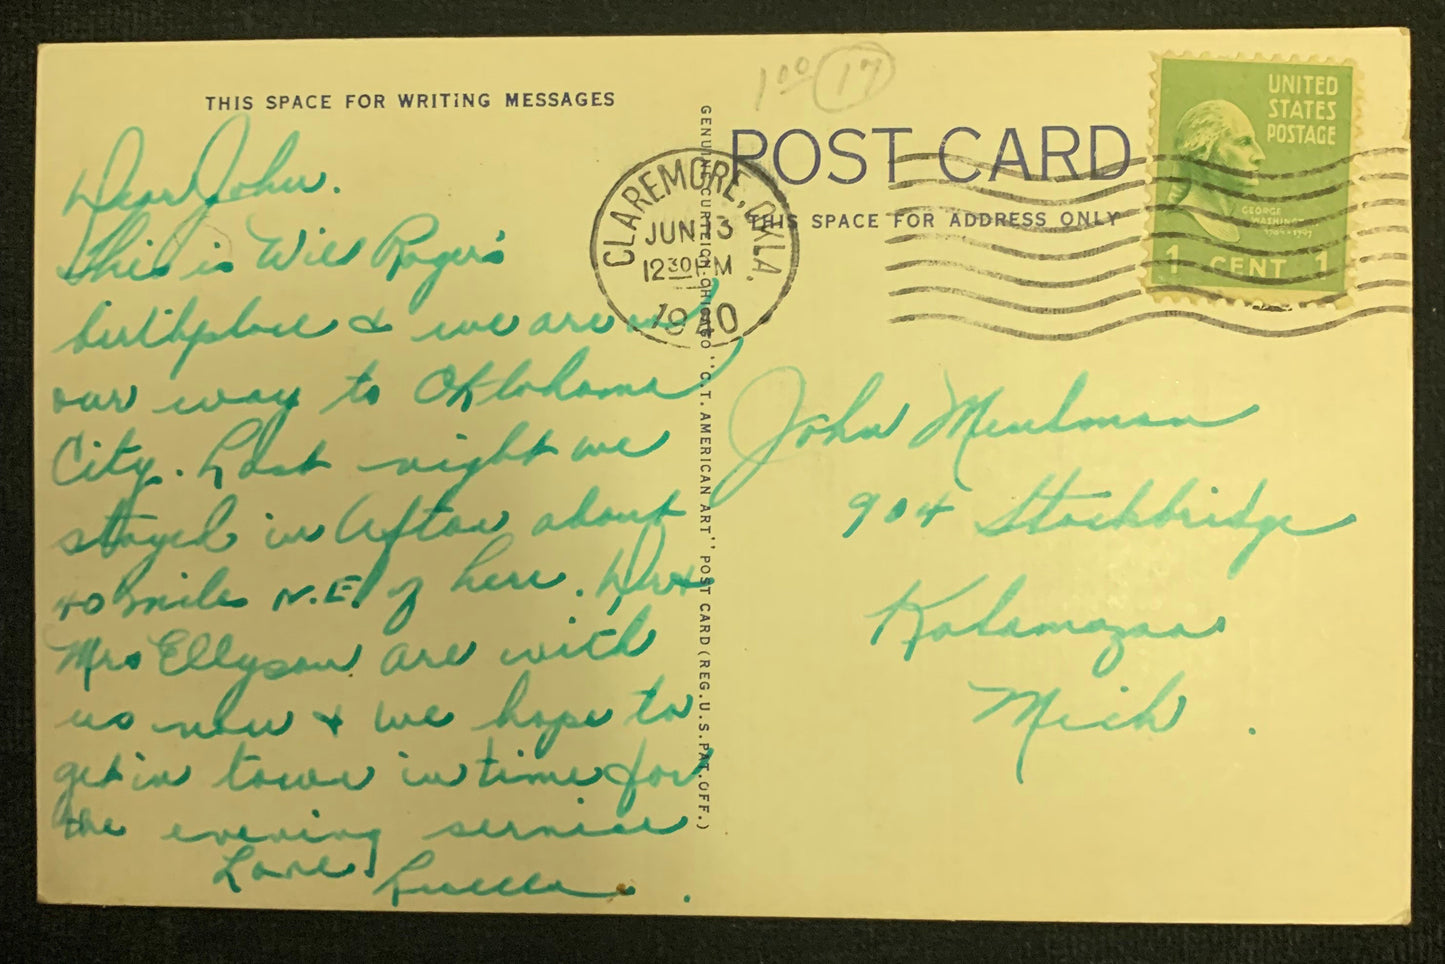 1 00 17
THIS SPACE FOR WRITING MESSAGES
Dear John.
This is Will Rogers
birthplace & we are on
our way to Oklahoma
City. Last night we
stayed in Afton about
40 miles N.E. of here. Dr &
Mrs Ellyson are with
us now & we hope to
get in town in time for
the evening service
Love
Luella.
GENUINE CURTEICH-CHICAGO "C.T. AMERICAN ART" POST CARD (REG. U.S. PAT. OFF.)
POST CARD
THIS SPACE FOR ADDRESS ONLY
CLAREMORE, OKLA.
JUN 13
12 30 PM
1940
UNITED
STATES
POSTAGE
GEORGE
WASHINGTON
1 CENT 1
John Meulman
904 Stockbridge
Kalamazoo
Mich.